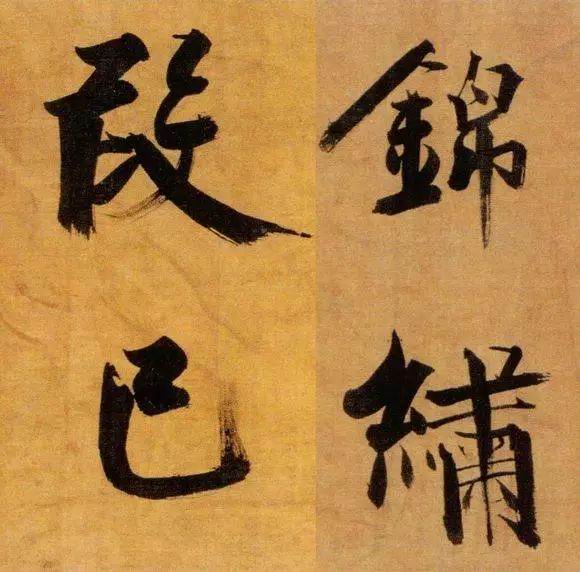 錦繡
段已